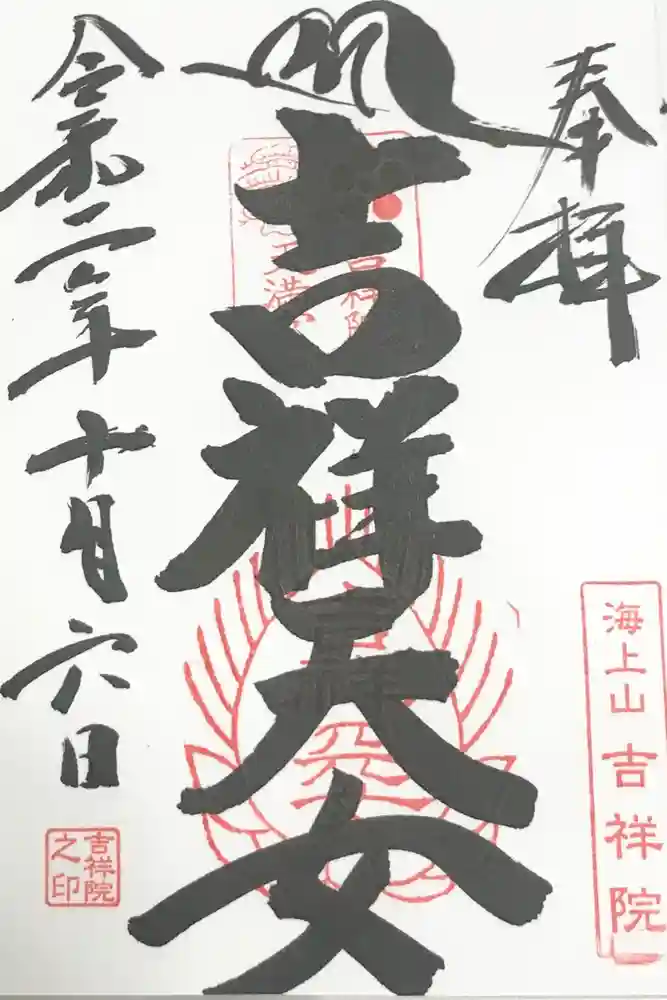 奉拝
海上山 吉祥院
吉祥天女
令和二年十月六日
吉祥院
之印